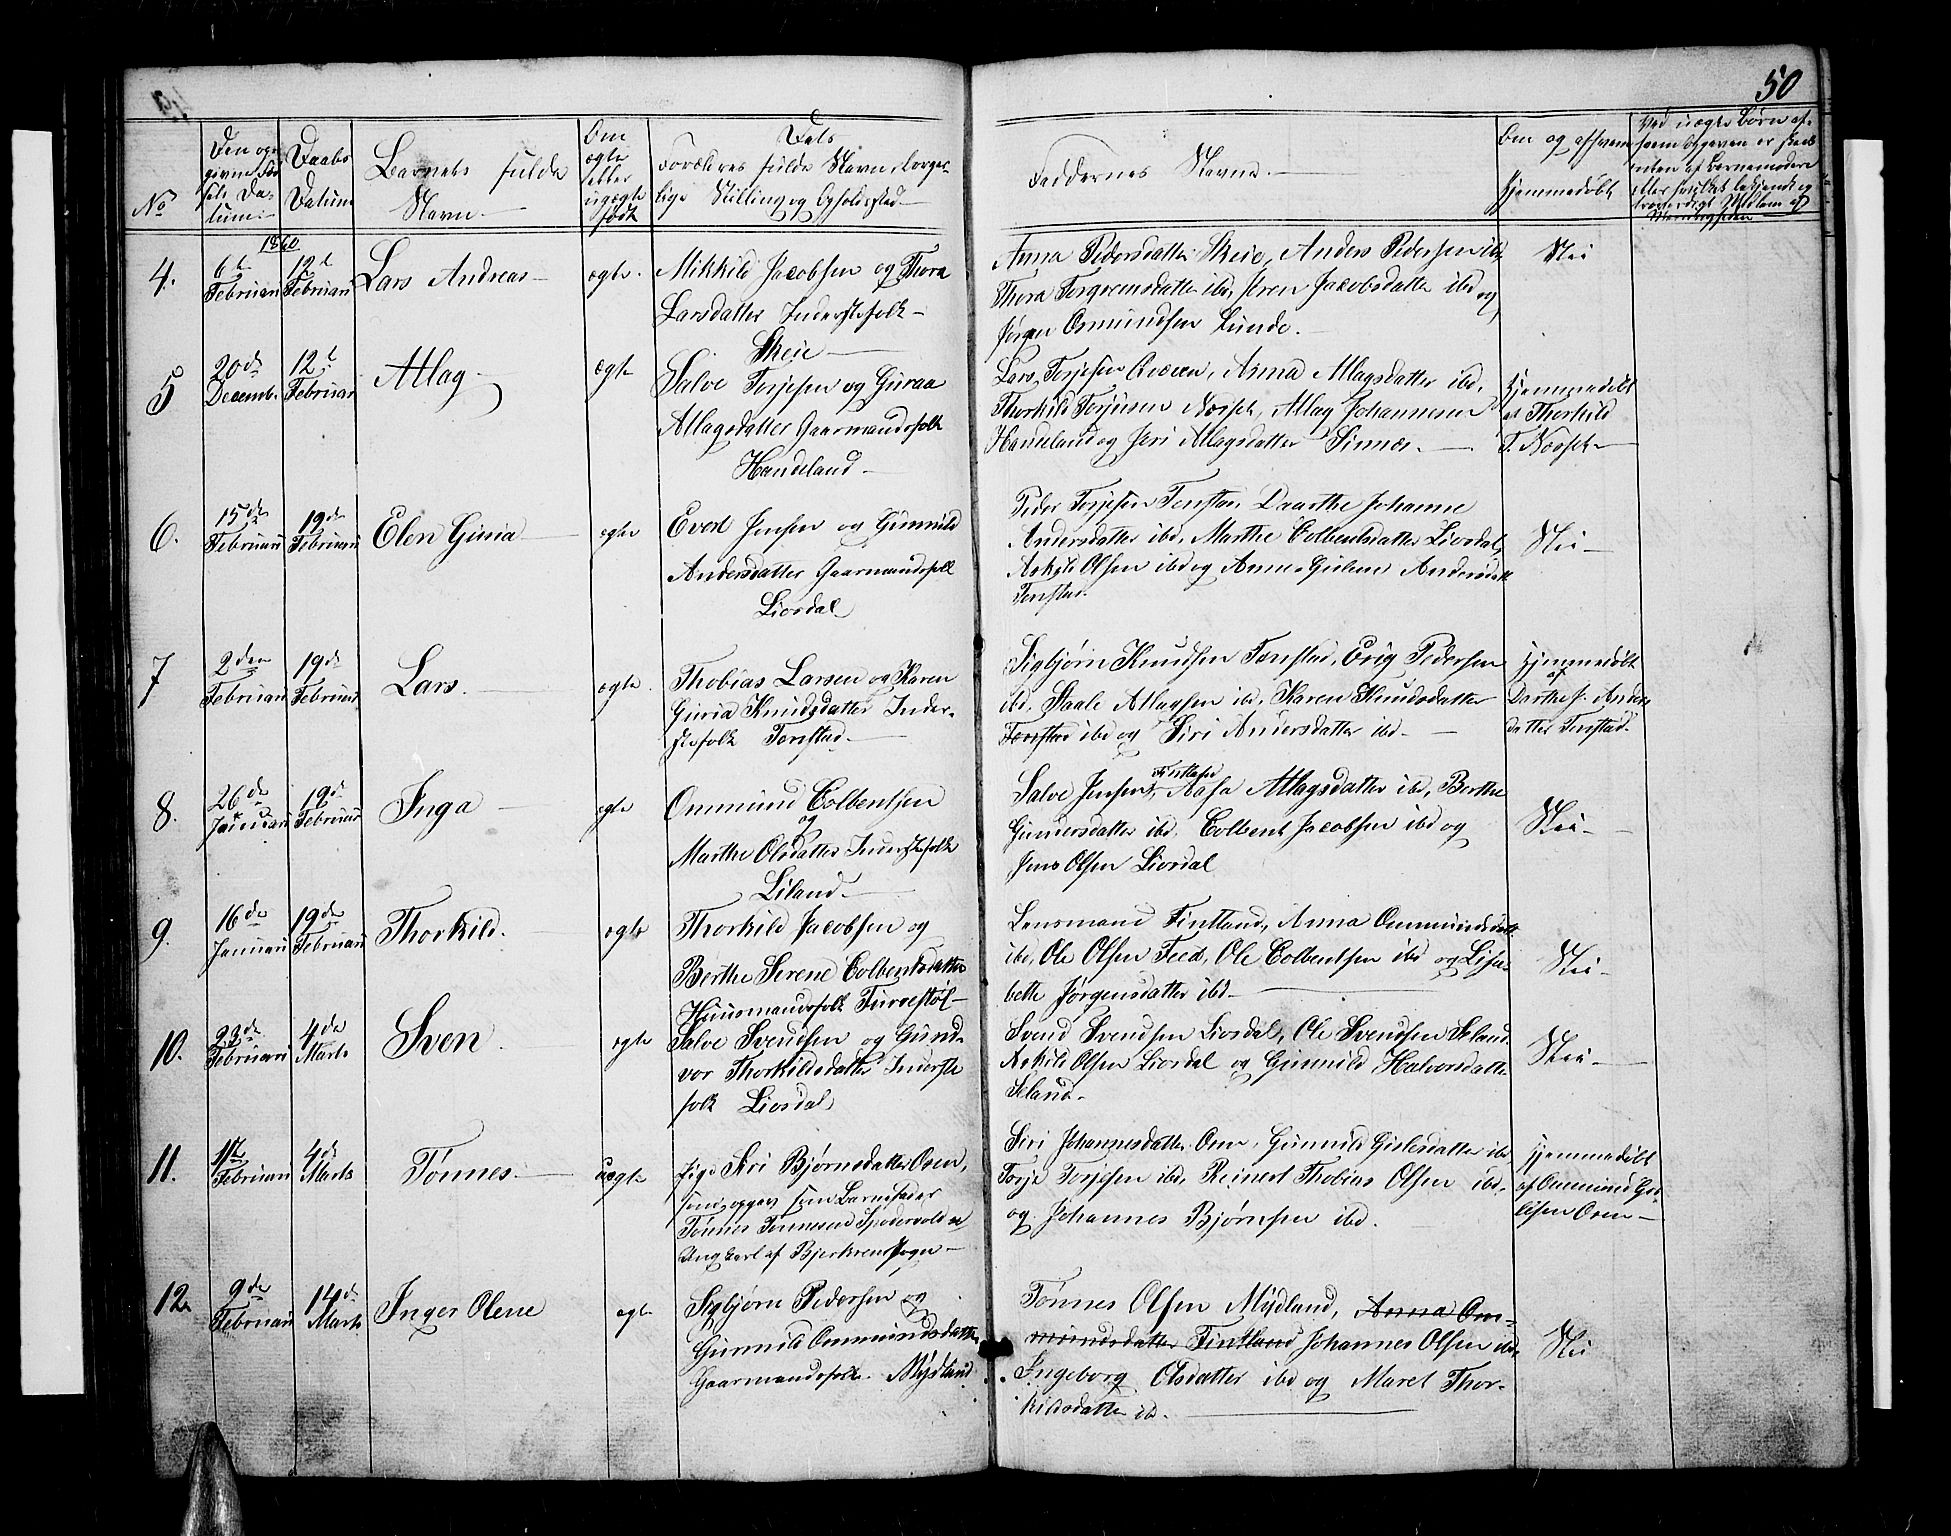 50
No
Den op-
givne Fød-
sels Da-
tum
Daabs
Datum
Barnets fulde
Navn.
Om
ægte
eller
uægte
født
Forældres fulde Navn, borger-
lige Stilling og Opholdssted
Faddernes Navne.
Om og af hvem
hjemmedøbt
1860
4.
6te
Februari
12te
Februari
Lars Andreas
ægte.
Mikkild Jacobsen og Thora
Larsdatter Inderstefolk
Skeie
Anna Pedersdatter Skeie, Anders Pedersen ibd,
Thora datter ibd, Jacobsdatter ibd og
Jørgen Osmundsen Lunde.
Nei
5
20de
Decemb.
12te
Februari
Atlag
ægte
Salve Torjesen og Guraa
Atlagsdatter Gaarmandsfolk
Handeland
Lars Torjesen , Anna Atlagsdatter ibd,
Thorkild Torjusen , Atlag Johannesen
Handeland og Siri Atlagsdatter Sinnes.
Hjemmedøbt
af Thorkild
T.
6.
15de
Februari
19de
Februari
Elen Guria
ægte
Evert Jensen og Gunnild
Andersdatter Gaarmandsfolk
Liosdal
Peder Torjesen Tonstad, Daarthe Johanne
Andersdatter ibd, Marthe Colbentsdatter Liosdal,
Askild Olsen ibd og Anne Gislene Andersdatt
Tonstad.
Nei
7
2den
Februari
19de
Februari
Lars.
ægte.
Thobias Larsen og Karen
Guria Knudsdatter Inder-
stefolk Tonstad.
Sigbjørn Knudsen Tonstad, Erig Pedersen
ibd, Staale Atlagsen ibd, Karen Knudsdatter
Tonstad ibd og Siri Andersdatter ibd.
Hjemmedøbt
af
Darthe J. Anders
datter Tonstad.
8.
26de
Januari
19de
Februari
Inga
ægte
Ommund Colbentsen
og
Marthe Olsdatter Inderstefolk
Liland.
Salve Jensen Fintland, Aasa Atlagsdatter ibd, Berthe
Gunnersdatter ibd, Colbent Jacobsen ibd og
Jens Olsen Liosdal
Nei
9.
16de
Januari
19de
Februari
Thorkild.
ægte
Thorkild Jacobsen og
Berthe Serene Colbentsdatter
Huusmandsfolk
Lensmand Fintland, Anna Ommundsdatt
ibd, Ole Olsen Feed, Ole Colbentsen ibd og Lisa-
bette Jørgensdatter ibd
Nei
10.
23de
Februari
4de
Marts
Sven.
ægte
Salve Svendsen og Gund-
vor Thorkildsdatter Inderste
folk Liosdal
Svend Svendsen Liosdal, Ole Svendsen Seland
Askild Olsen Liosdal og Gunnild Halvorsdatter
Seland.
Nei
11.
Februari
4de
Marts
Tønnes.
uægte
Pige Siri Bjørnsdatter Osen,
som opgav som Barnefader
Tønnes Tønnesen
Ungkarl af Bjerkrem Sogn
Siri Johannesdatter Osen, Gunnild Gislesdatter ibd
Torje Torjesen ibd, Reinert Thobias Olsen ibd,
og Johannes Bjørnsen ibd.
Hjemmedøbt
af Ommund Gis-
lesen Osen
12.
9de
Februari
14de
Marts
Inger Olene
ægte
Sigbjørn Pedersen og
Gunnild Ommundsdatter
Gaarmandsfolk Mydland
Tønnes Olsen Mydland, Anna Om-
mundsdatter Fintland Johannes Olsen ibd,
Ingeborg Olsdatter ibd og Maret Thor-
kildsdatter ibd.
Nei